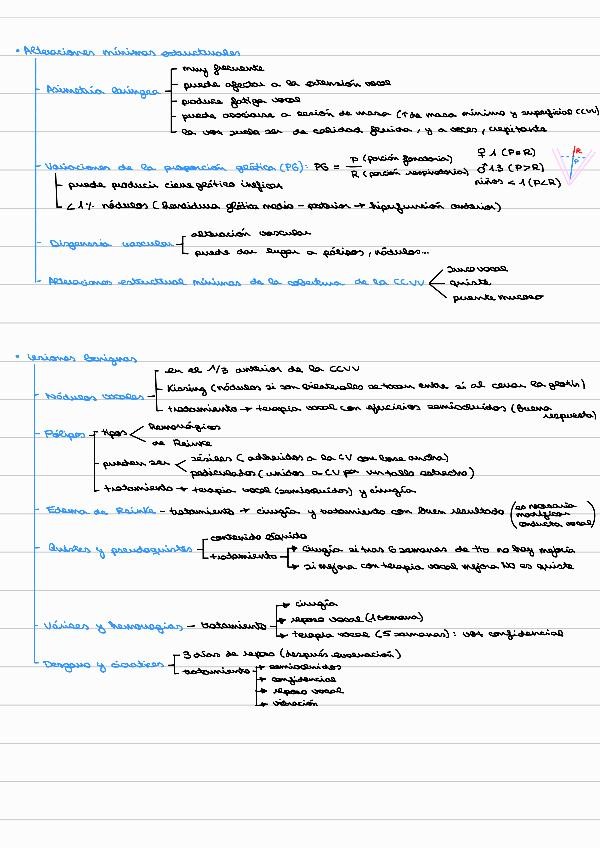 • Alteraciones mínimas estructurales
- Asimetría laríngea
- muy frecuente
- puede afectar a la extensión vocal
- produce fatiga vocal
- puede asociarse a lesión de masa (↑ de masa mínimo y superficial CCVV)
- la voz suele ser de calidad fluida, y a veces, crepitante
- Variaciones de la proporción glótica (PG): PG = P (porción fonatoria) / R (porción respiratoria)
♀ 1 (P=R)
♂ 1.3 (P>R)
niños < 1 (P<R)
R
P
- puede producir cierre glótico ineficaz
- < 1% nódulos (hendidura glótica medio-posterior → hiperfunción anterior)
- Disgenesia vascular
- alteración vascular
- puede dar lugar a pólipos, nódulos...
- Alteraciones estructural mínimas de la cobertura de la CCVV
surco vocal
quiste
puente mucoso
• Lesiones benignas
- Nódulos vocales
- en el 1/3 anterior de la CCVV
- Kissing (nódulos si son bilaterales se tocan entre sí al cerrar la glotis)
- tratamiento → terapia vocal con ejercicios semiocluidos (buena respuesta)
- Pólipos
- tipos
Hemorrágicos
de Reinke
- pueden ser
sésiles (adheridos a la CV con base ancha)
pediculados (unidos a CV por un tallo estrecho)
- tratamiento → terapia vocal (semiocluidos) y cirugía
- Edema de Reinke - tratamiento → cirugía y tratamiento con buen resultado (es necesario modificar conducta vocal)
- Quistes y pseudoquistes
- contenido líquido
- tratamiento
→ cirugía si tras 6 semanas de tto no hay mejoría
→ si mejora con terapia vocal mejora NO es quiste
- Várices y hemorragias - tratamiento
→ cirugía
→ reposo vocal (1 semana)
→ terapia vocal (5 semanas): voz confidencial
- Desgarro y cicatrices
- 3 días de reposo (después evaluación)
- tratamiento
→ semiocluidos
→ confidencial
→ reposo vocal
→ vibración